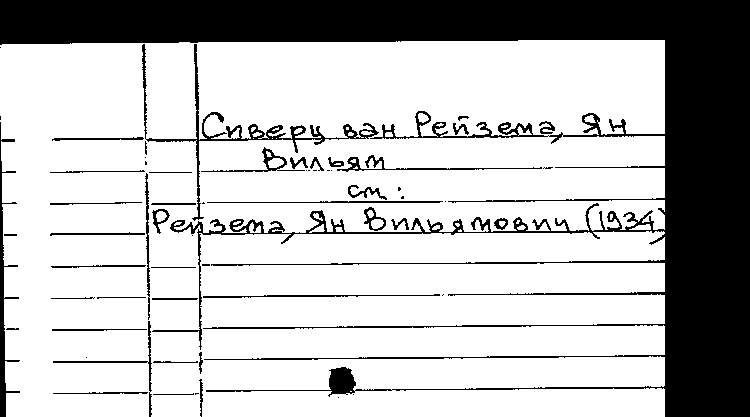 Сиверц ван Рейзема, Ян
Вильям
см:
Рейзема, Ян Вильямович (1934)